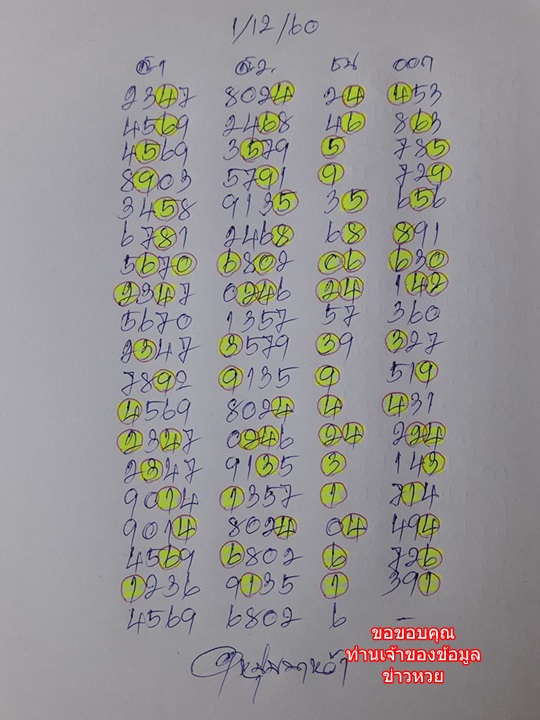 1/12/60
ส.1 ส2. ชน ออก
2347 8024 24 453
4569 2468 46 863
4569 3579 5 785
8903 5791 9 729
3458 9135 35 656
6781 2468 68 891
5670 6802 06 630
2347 0246 24 142
5670 1357 57 360
2347 3579 39 327
7892 9135 9 519
4569 8024 4 431
2347 0246 24 224
2347 9135 3 143
9014 1357 1 714
9014 8024 04 494
4569 6802 6 726
1236 9135 1 391
4569 6802 6 -
ขอขอบคุณ
ท่านเจ้าของข้อมูล
ข่าวหวย